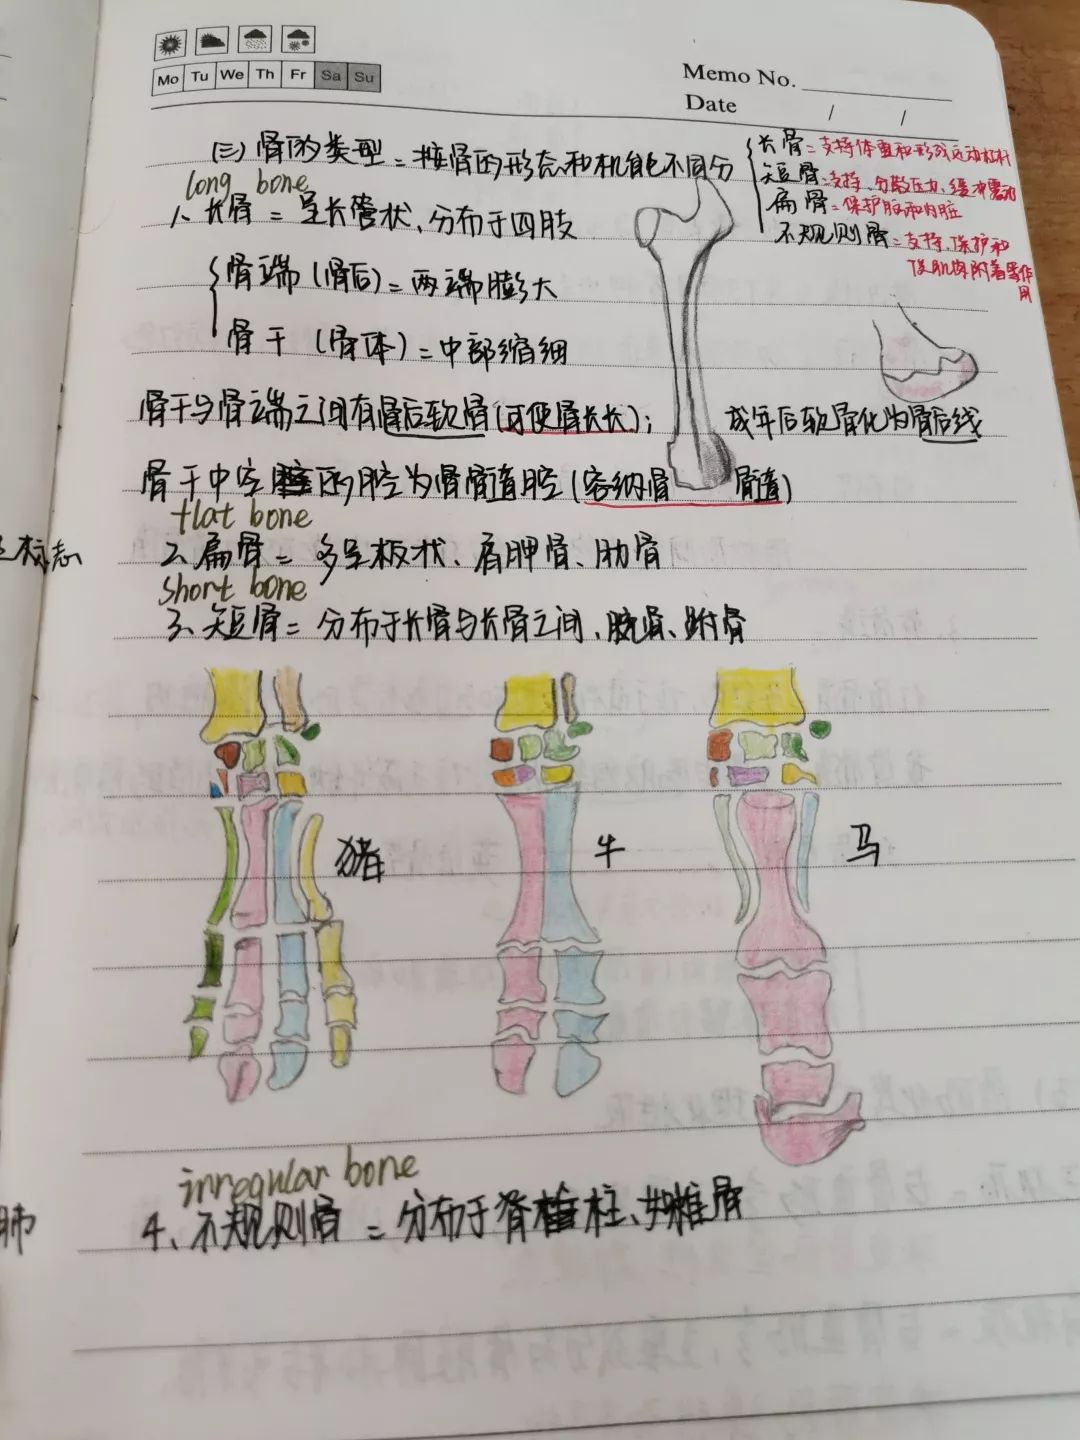 Mo Tu We Th Fr Sa Su
Memo No.
Date / /
(三) 骨的类型 = 按骨的形态和机能不同分
长骨 = 支持体重和形成运动杠杆
短骨 = 支持、分散压力、缓冲震动
扁骨 = 保护脑和内脏
不规则骨 = 支持、保护和
供肌肉附着等作
用
long bone
1、长骨 = 呈长管状、分布于四肢
骨端 (骨后) = 两端膨大
骨干 (骨体) = 中部缩细
骨干与骨端之间有骨后软骨 (可使骨长长); 成年后软骨化为骨后线
骨干中空的腔为骨髓腔 (容纳骨 骨髓)
flat bone
2、扁骨 = 多呈板状、肩胛骨、肋骨
short bone
3、短骨 = 分布于长骨与长骨之间、腕骨、跗骨
猪 牛 马
irregular bone
4、不规则骨 = 分布于脊柱、如椎骨
标志
肺